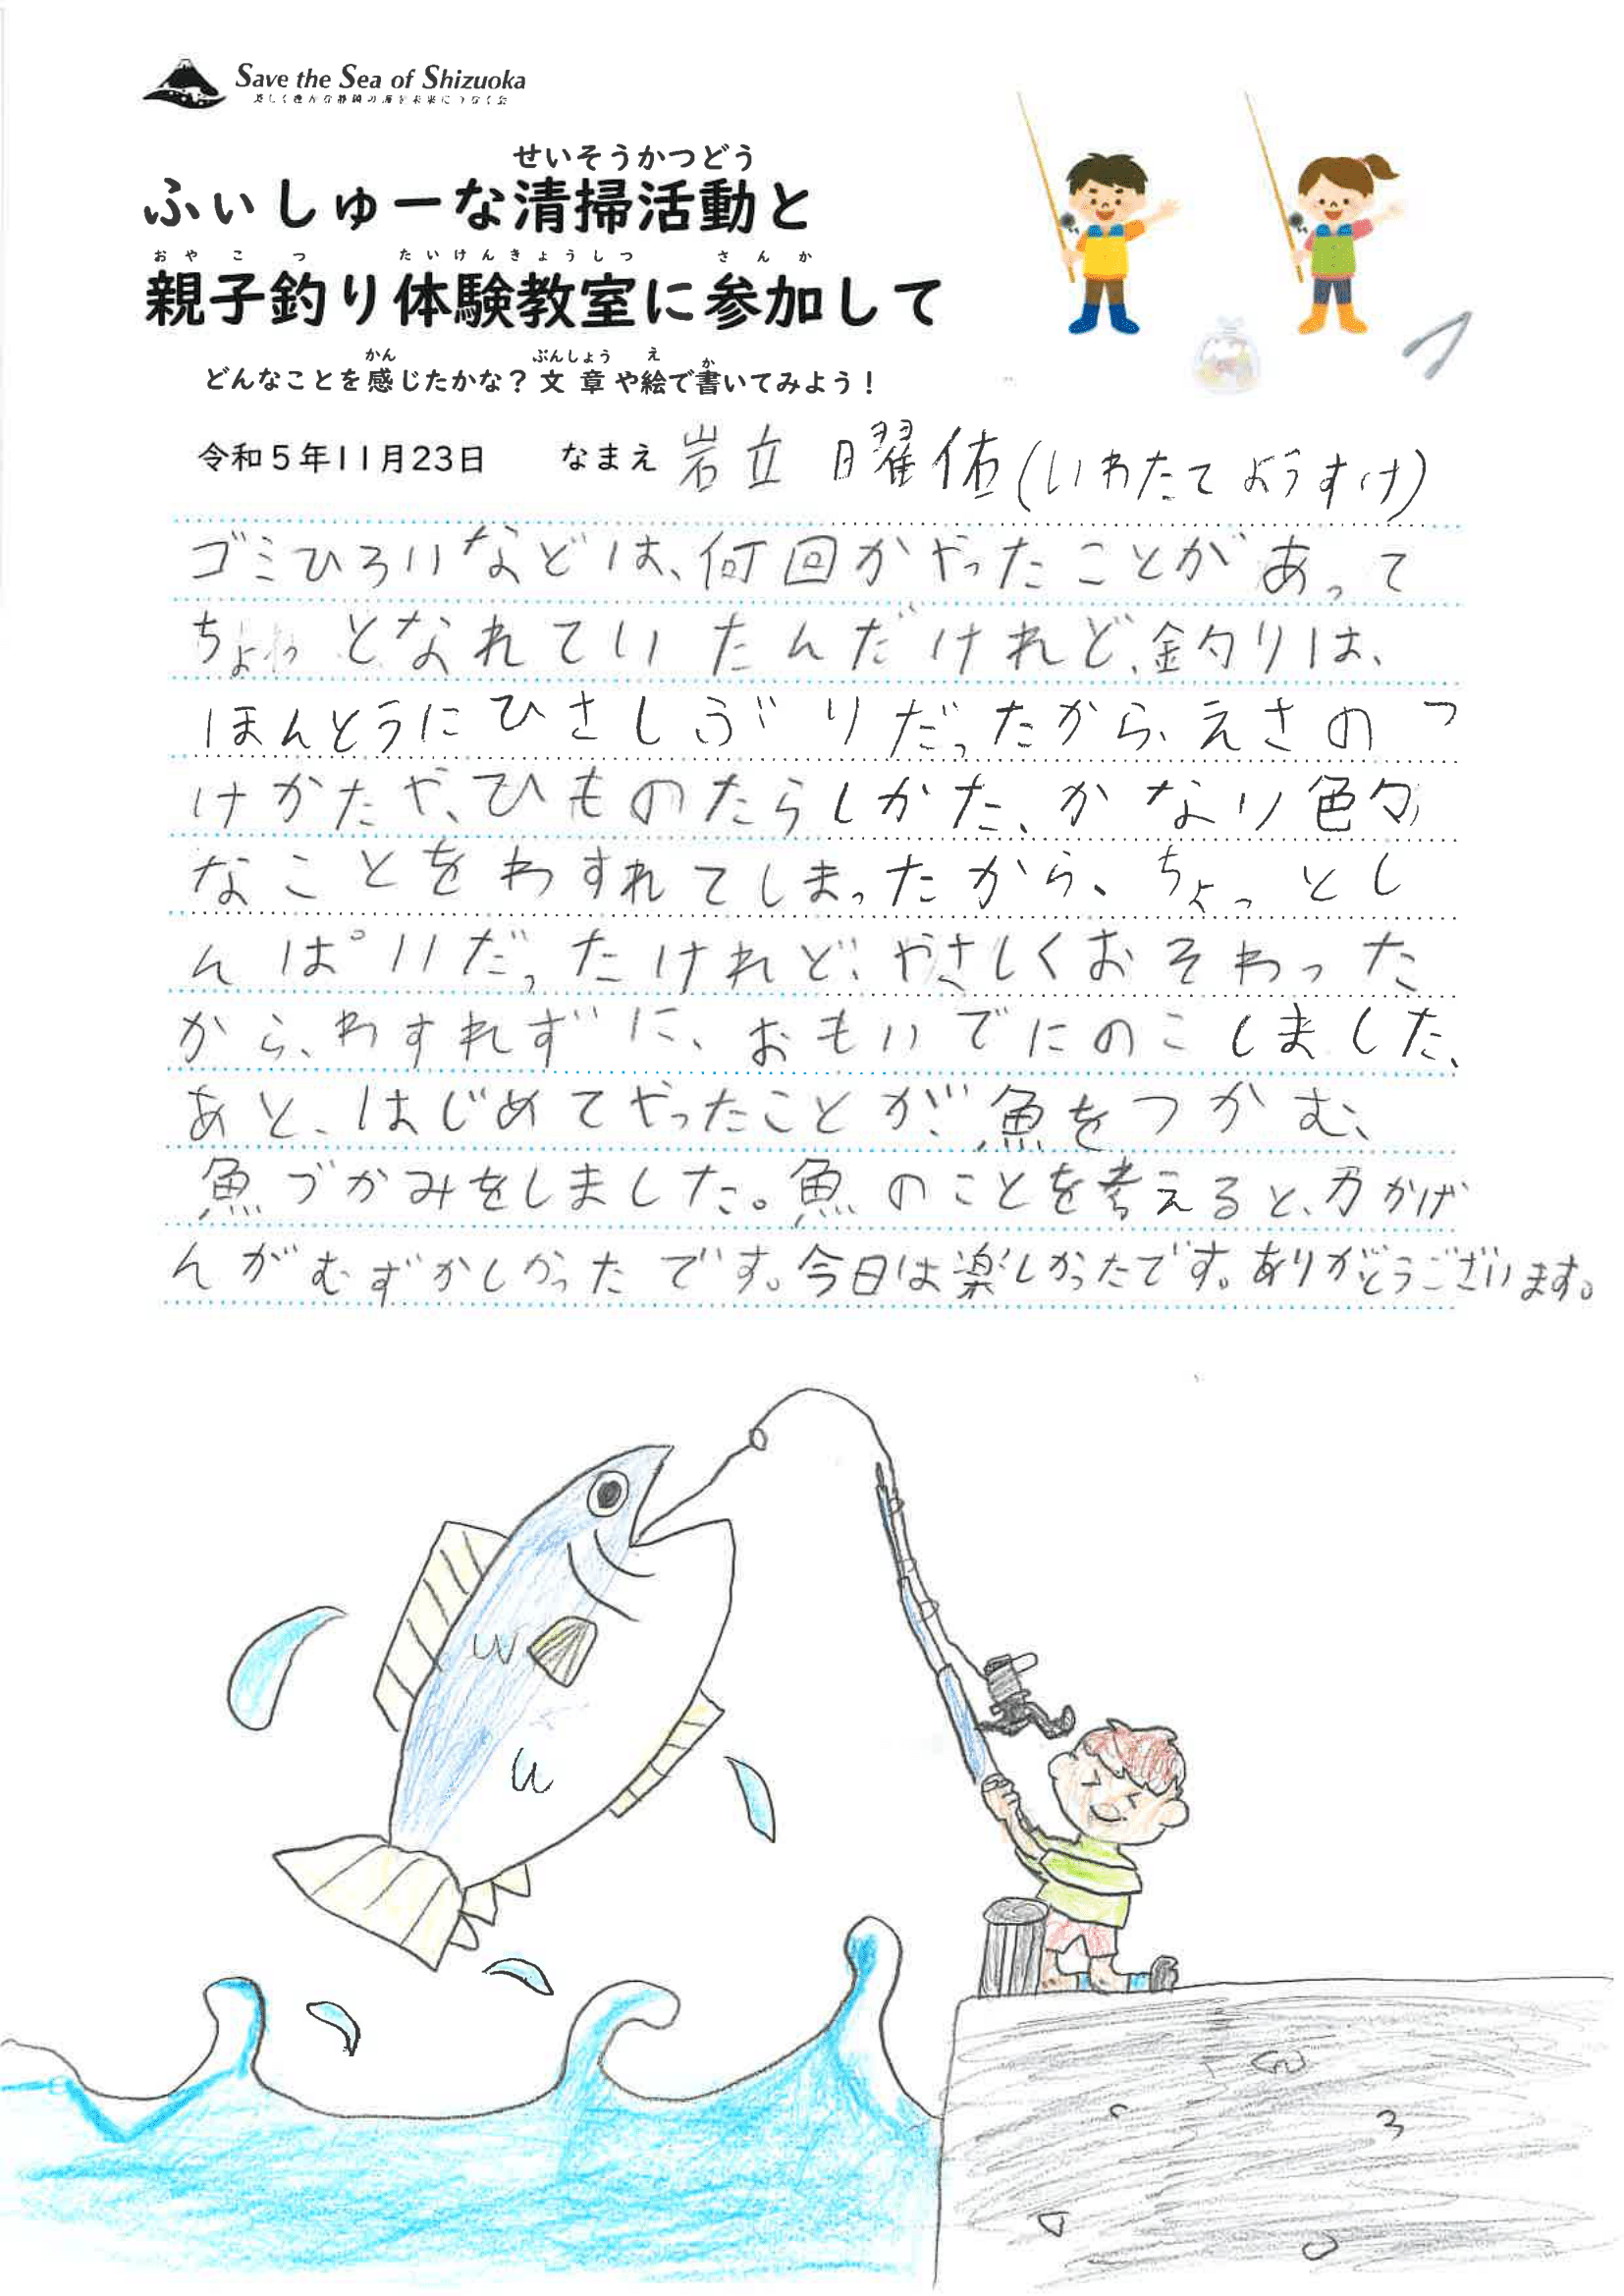 Save the Sea of Shizuoka
美しく豊かな静岡の海を未来につなぐ会
せいそうかつどう
ふぃしゅーな清掃活動と
おやこ つ たいけんきょうしつ さんか
親子釣り体験教室に参加して
かん ぶんしょう え か
どんなことを感じたかな？文章や絵で書いてみよう！
令和5年11月23日 なまえ 岩立 曜佑(いわたて ようすけ)
ゴミひろいなどは、何回かやったことがあって
ちょっとなれていたんだけれど、釣りは、
ほんとうにひさしぶりだったから、えさのつ
けかたや、ひものたらしかた、かなり色々
なことをわすれてしまったから、ちょっとし
んぱいだったけれど、やさしくおそわった
から、わすれずに、おもいでにのこしました、
あと、はじめてやったことが、魚をつかむ、
魚づかみをしました。魚のことを考えると、力かげ
んがむずかしかったです。今日は楽しかったです。ありがとうございます。